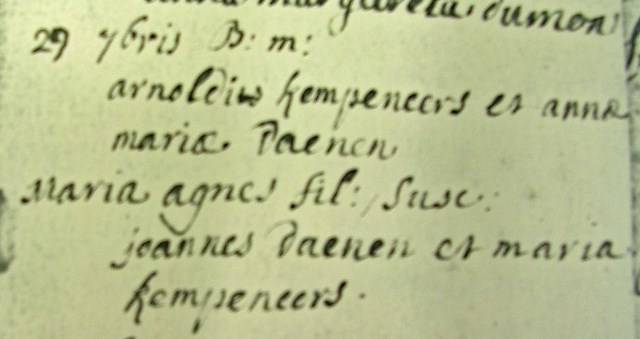 anna margareta dumon
29 7bris B: m:
arnoldi kempeneers et annæ
mariæ Daenen
Maria agnes fil: Susc:
joannes Daenen et maria
kempeneers.